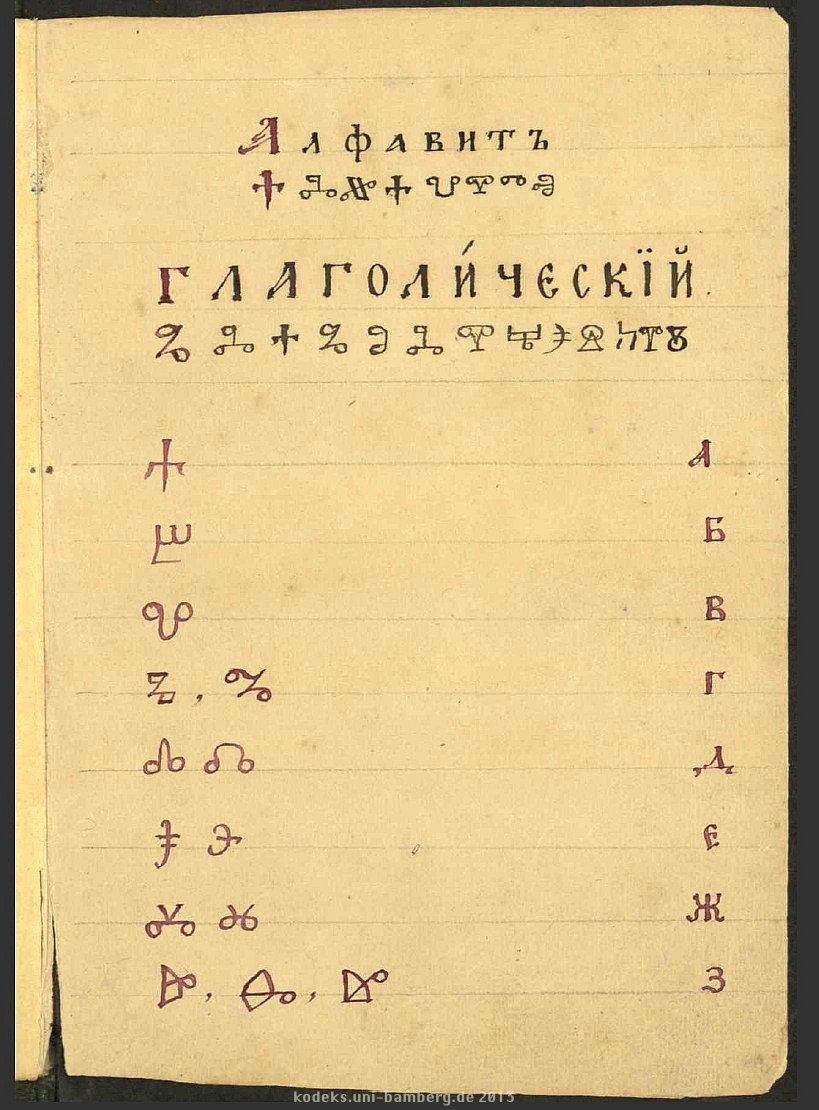 Алфавитъ
ⰰⰾⱇⰰⰲⰹⱅⱏ
Глаголи́ческїй
ⰳⰾⰰⰳⱁⰾⰹⱍⰵⱄⰽⰹ
ⰰ А
ⰱ Б
ⰲ В
ⰳ, ⰳ Г
ⰴ ⰴ Д
ⰵ ⰵ Є
ⰶ ⰶ Ж
ⰸ, ⰸ, ⰸ З
kodeks.uni-bamberg.de 2013